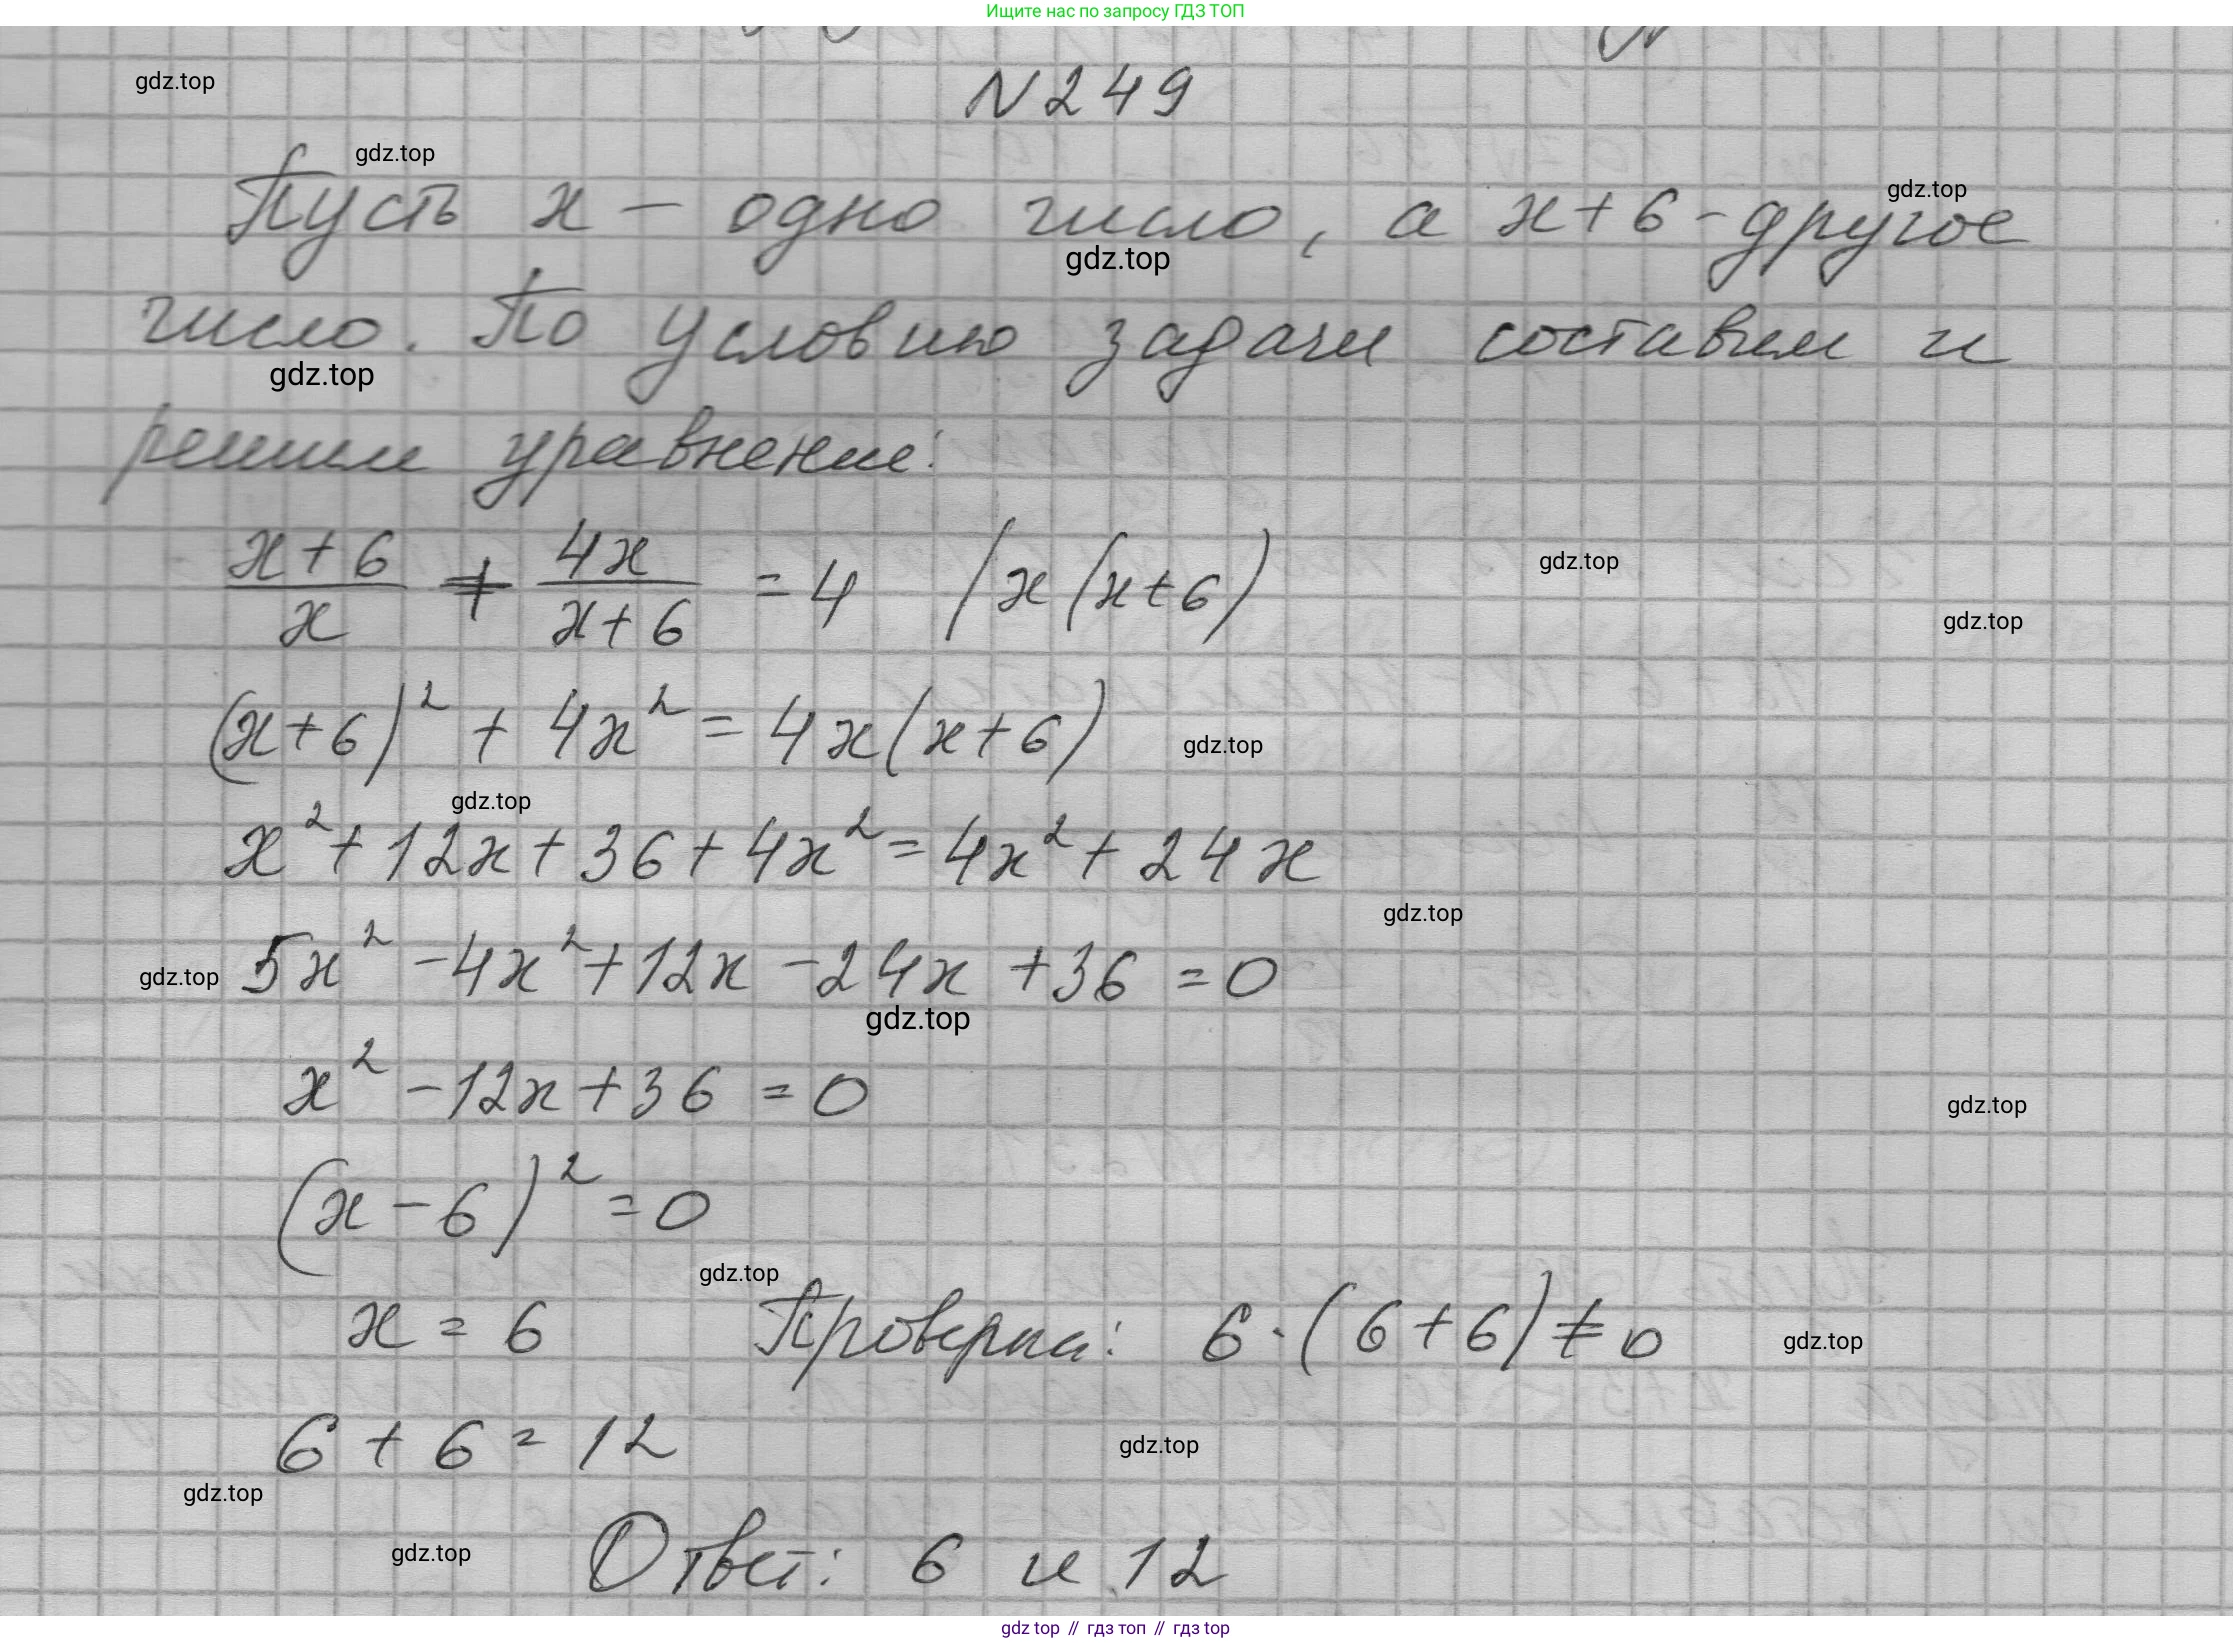 Ищите нас по запросу ГДЗ ТОП
gdz.top
N 249
gdz.top
gdz.top
Пусть x - одно число, а x+6 - другое
gdz.top
число. По условию задачи составим и
gdz.top
решим уравнение:
(x+6)/x + 4x/(x+6) = 4 | x(x+6)
gdz.top
gdz.top
(x+6)² + 4x² = 4x(x+6)
gdz.top
gdz.top
x² + 12x + 36 + 4x² = 4x² + 24x
gdz.top
5x² - 4x² + 12x - 24x + 36 = 0
gdz.top
gdz.top
x² - 12x + 36 = 0
gdz.top
(x - 6)² = 0
gdz.top
x = 6 Проверка: 6·(6+6) ≠ 0
gdz.top
6 + 6 = 12
gdz.top
gdz.top
gdz.top
Ответ: 6 и 12
gdz top // гдз топ // гдз top